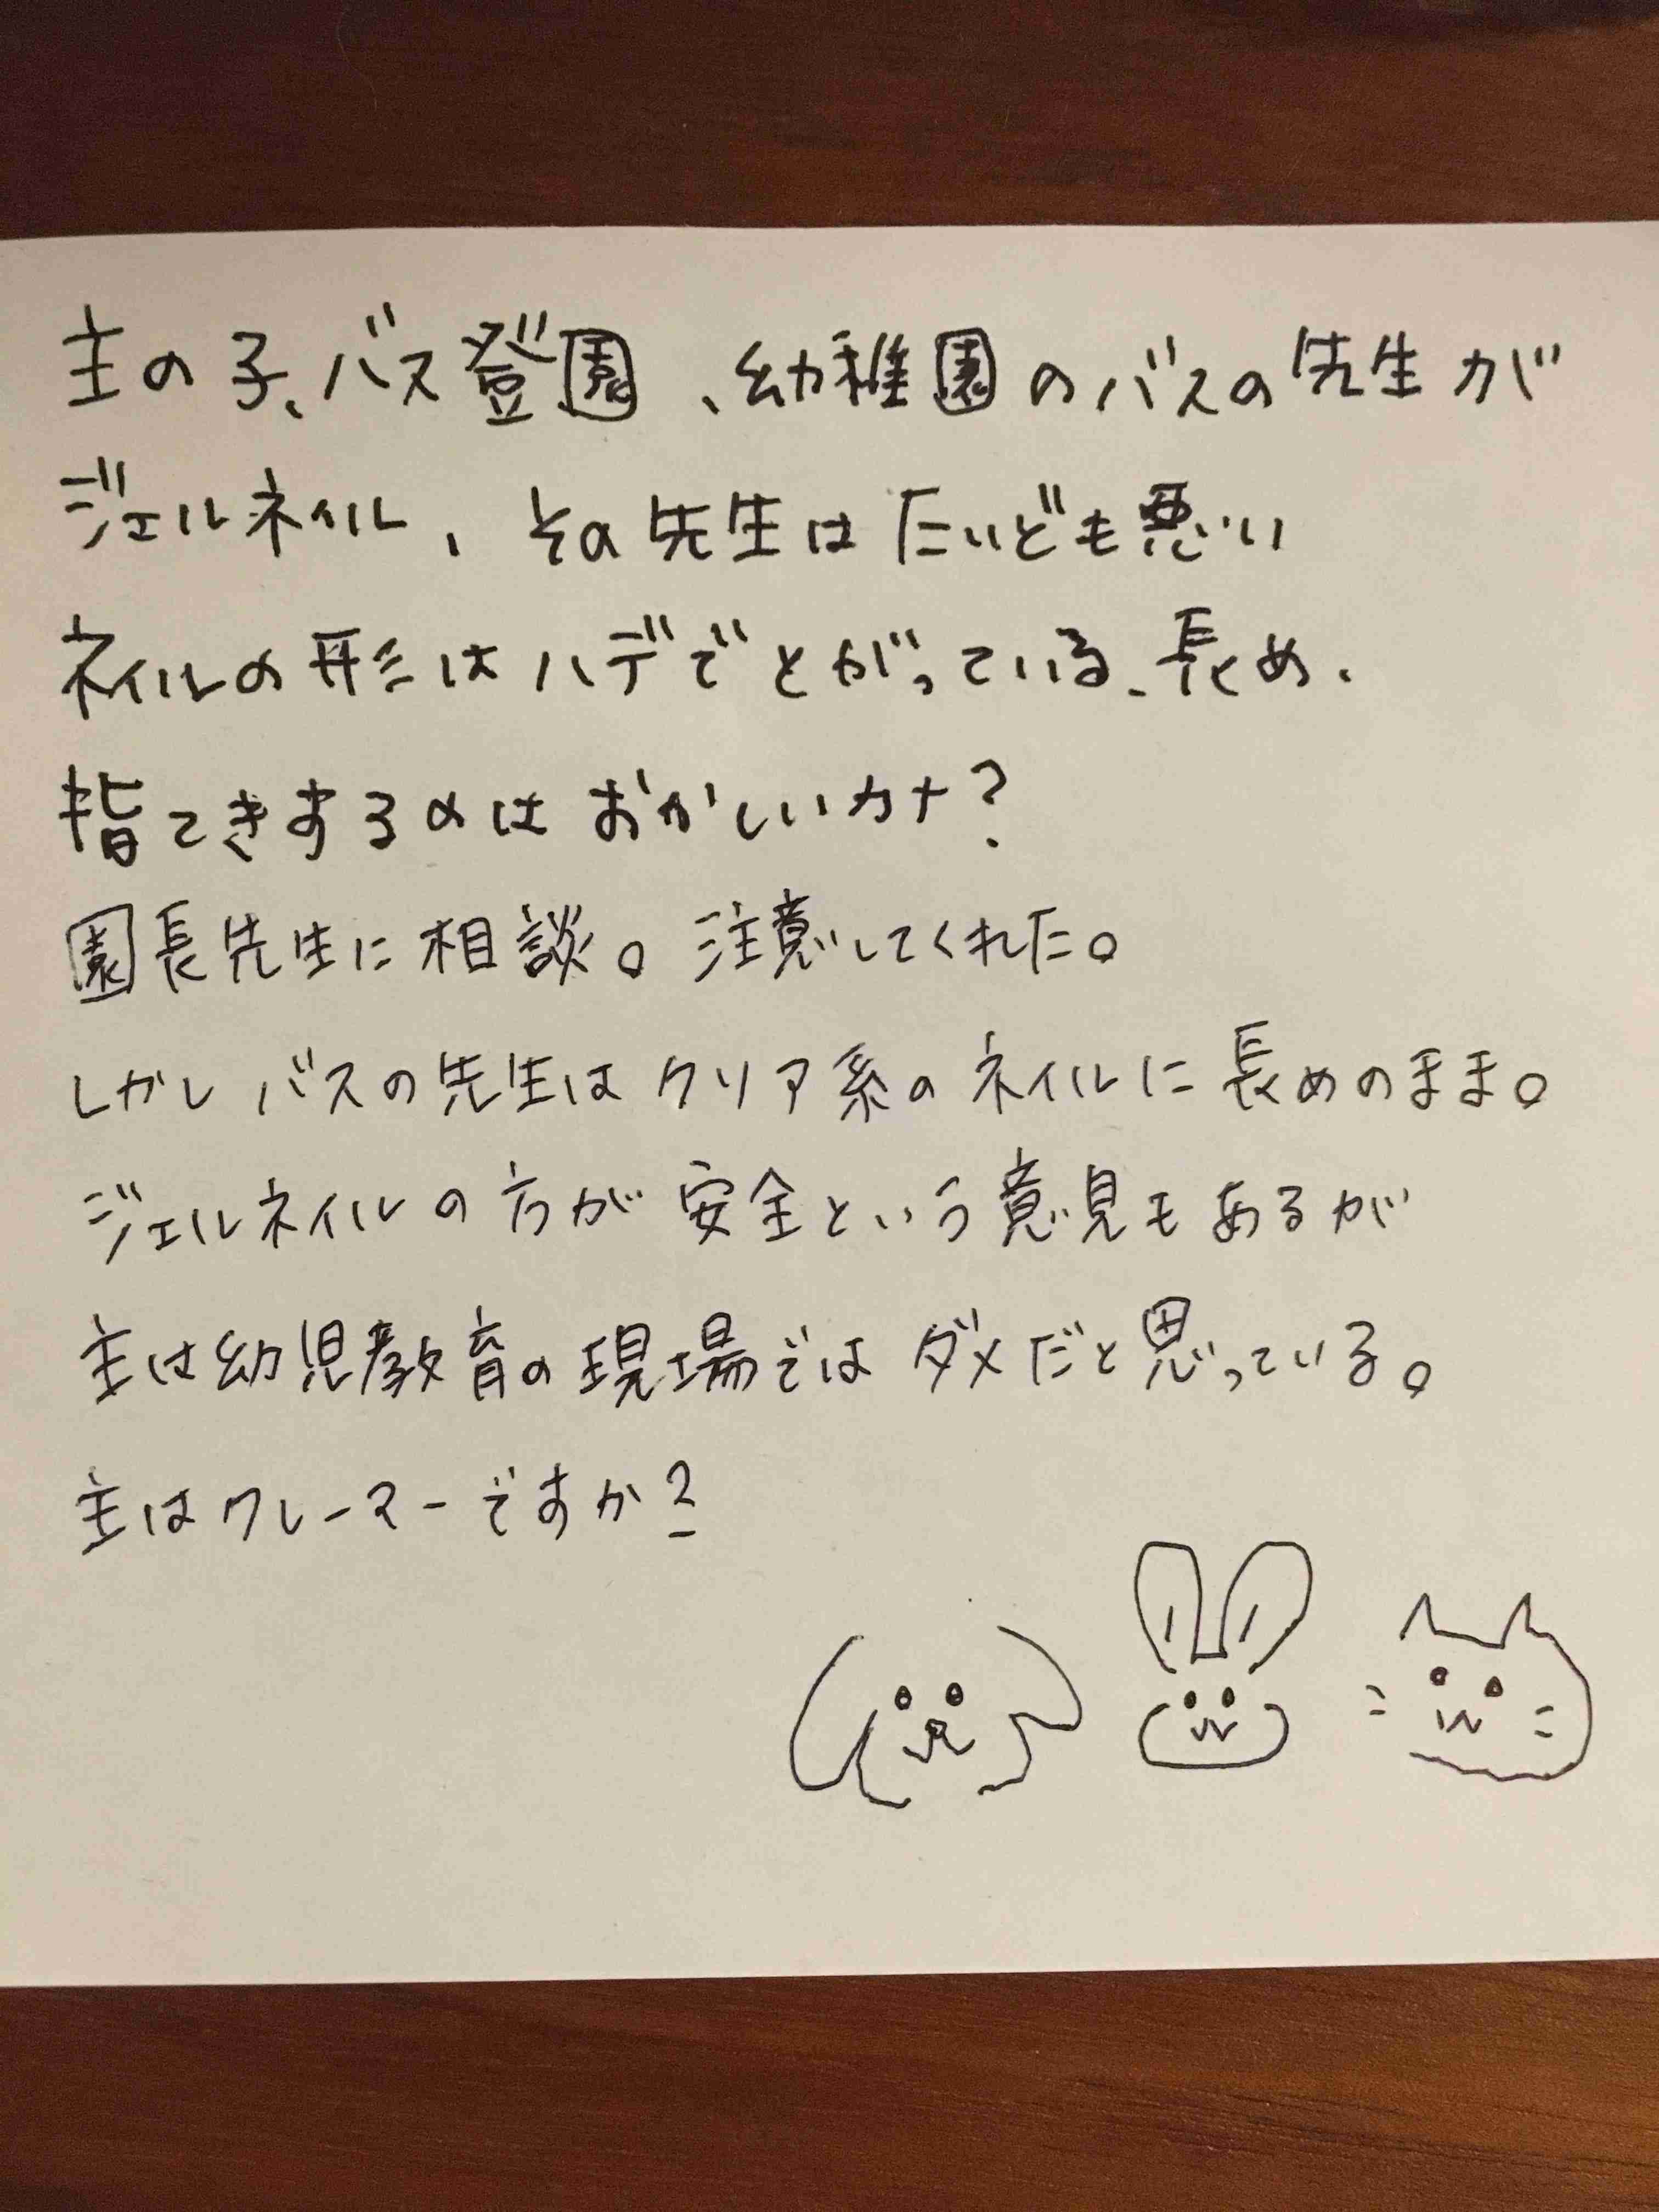 主の子、バス登園、幼稚園のバスの先生が
ジェルネイル、その先生はたいども悪い
ネイルの形はハデでとがっている、長め、
指てきするのはおかしいカナ?
園長先生に相談。注意してくれた。
しかしバスの先生はクリア系のネイルに長めのまま。
ジェルネイルの方が安全という意見もあるが
主は幼児教育の現場ではダメだと思っている。
主はクレーマーですか?